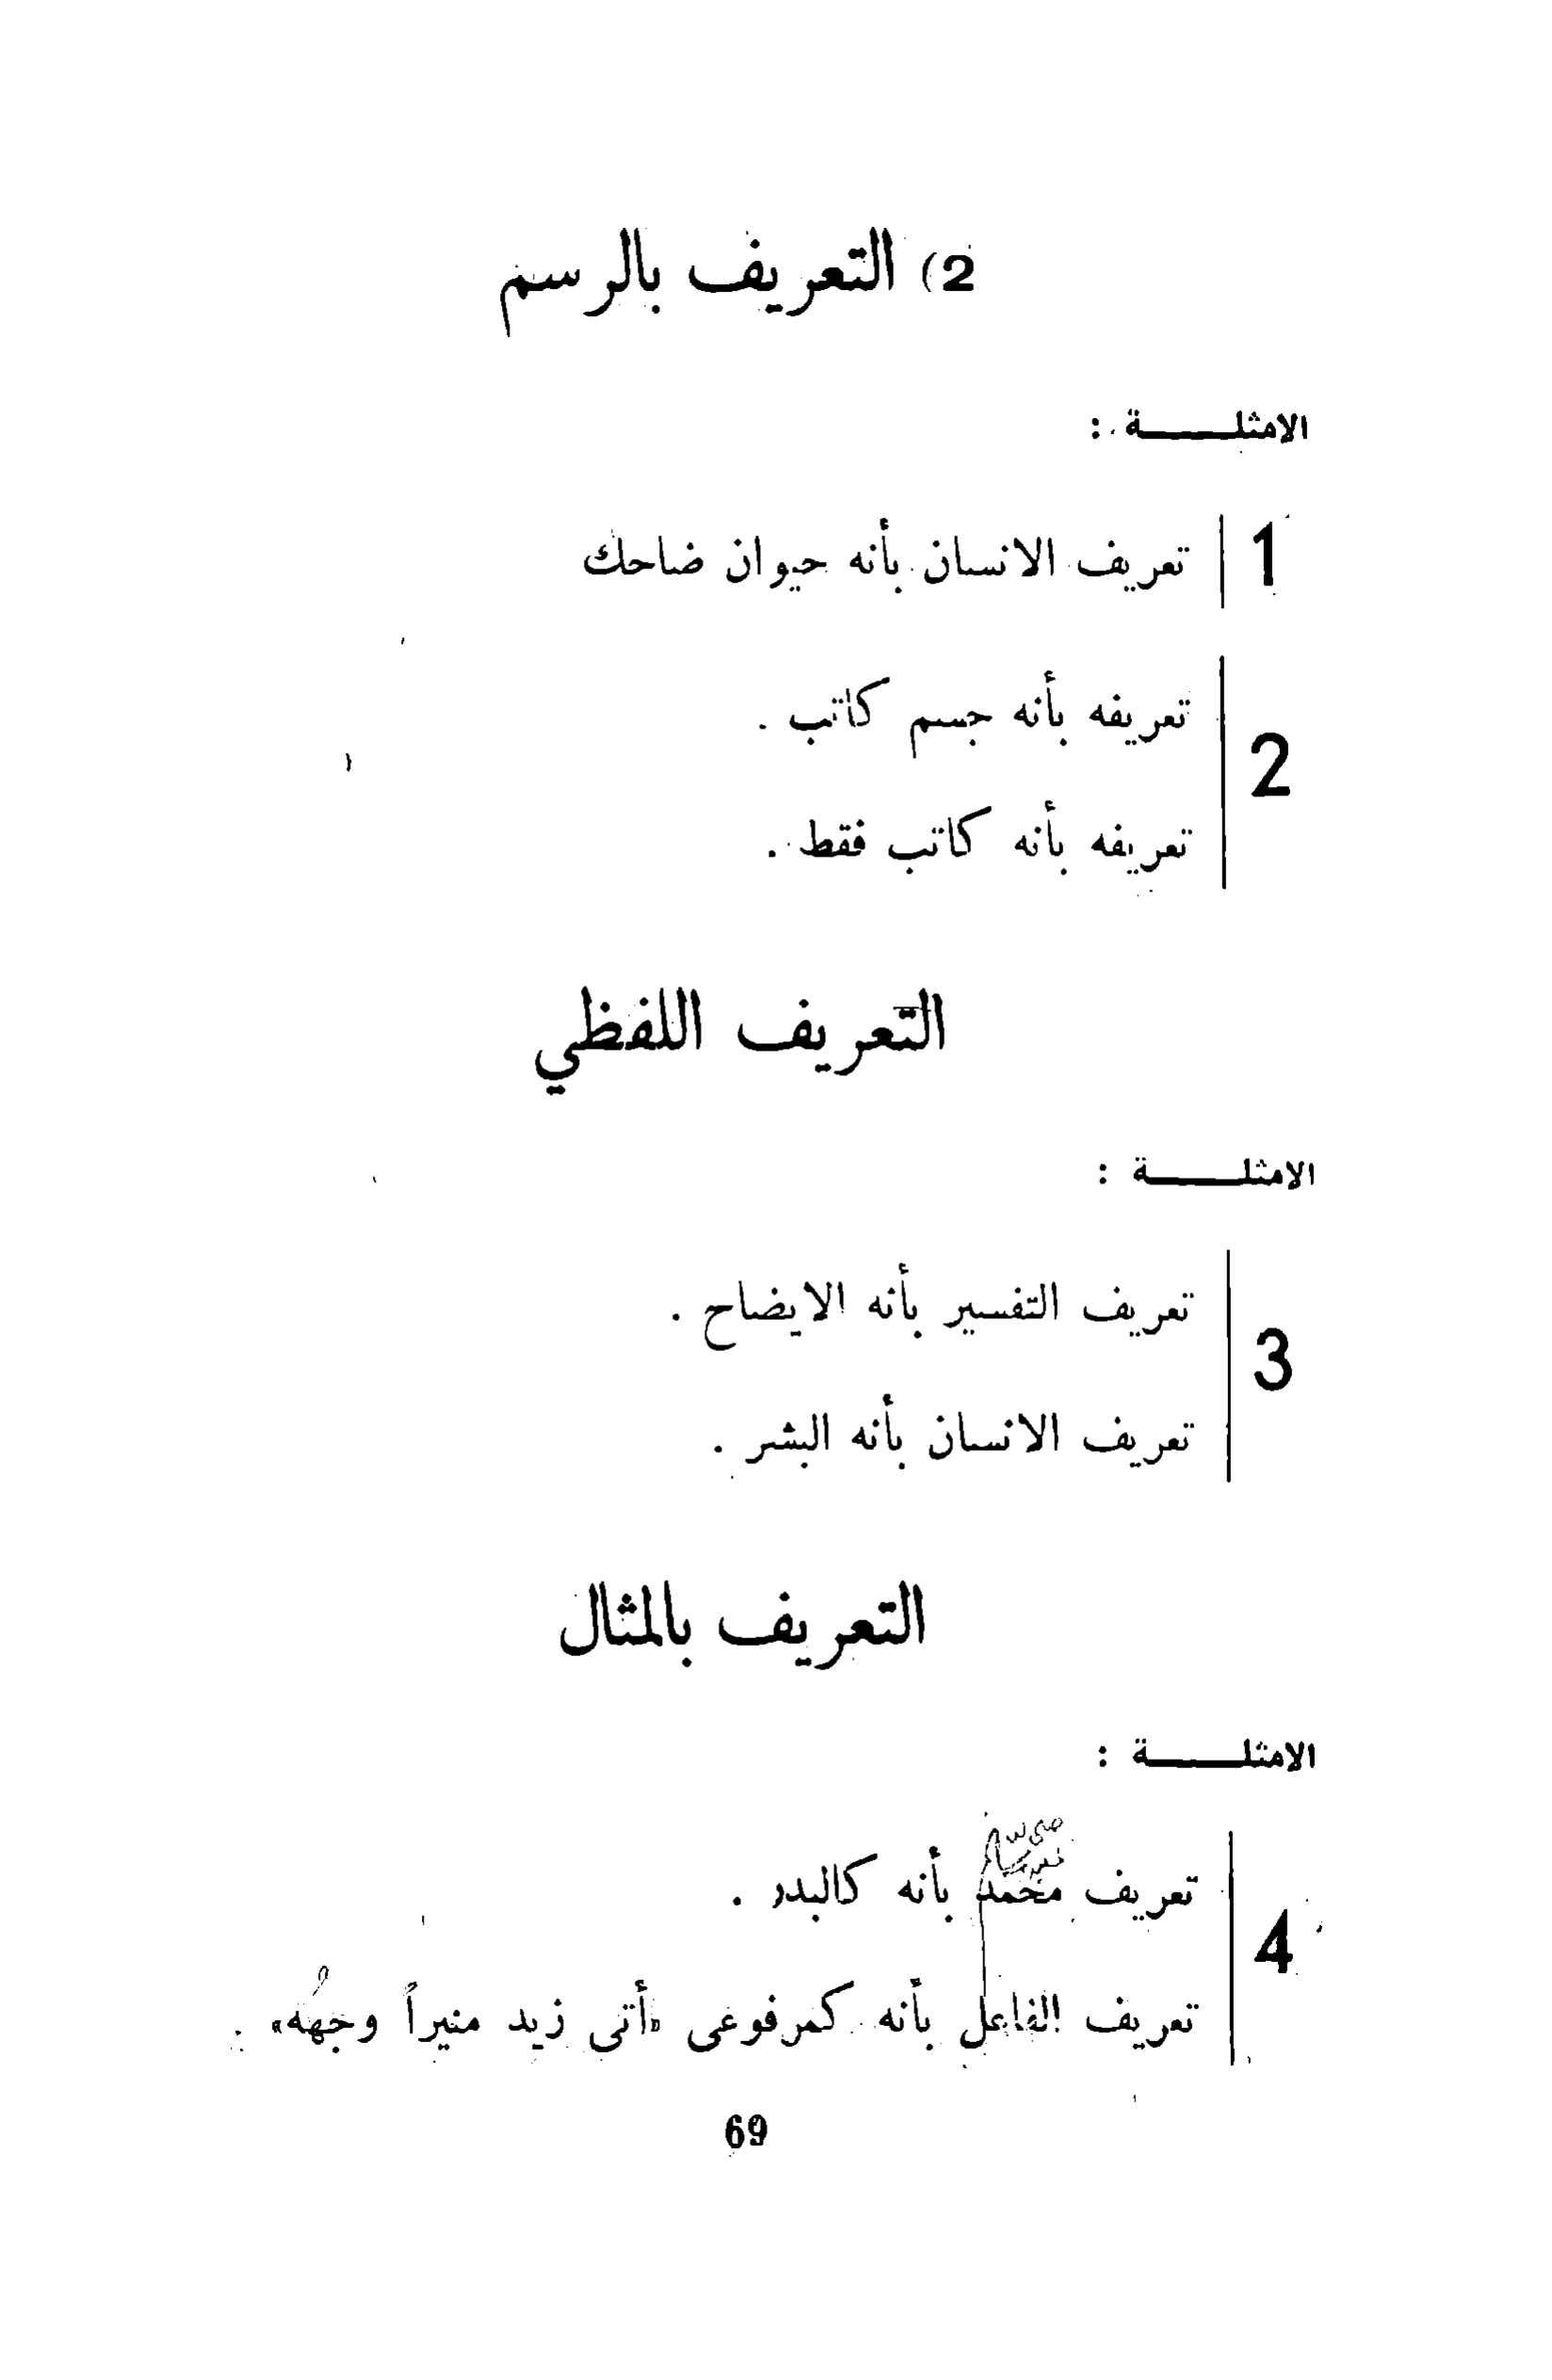 2) التعريف بالرسم
الامثلـــــة :
1 تعريف الانسان بأنه حيوان ضاحك
تعريفه بأنه جسم كاتب .
2
تعريفه بأنه كاتب فقط .
التعريف اللفظي
الامثلـــــة :
تعريف التفسير بأنه الايضاح .
3
تعريف الانسان بأنه البشر .
التعريف بالمثال
الامثلـــــة :
تعريف محمد بأنه كالبدر .
4
تعريف الفاعل بأنه كمرفوعى «أتى زيد منيراً وجهُه» .
69